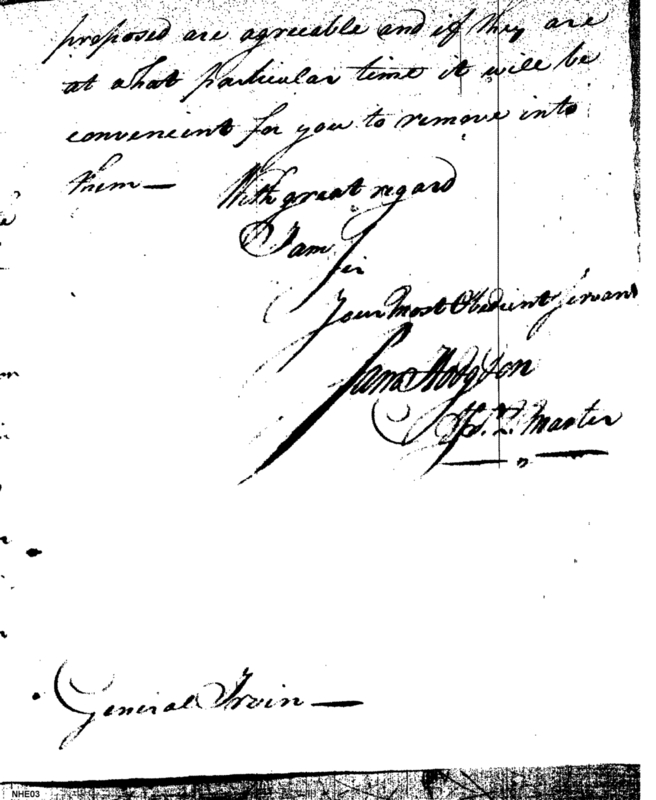 proposed are agreeable and if they are
at what particular time it will be
convenient for you to remove into
them—
With great regard
I am
Sir
Your Most Obedient Servant
Sam Hodgdon
Q. Master
General Irvin—
NHE03